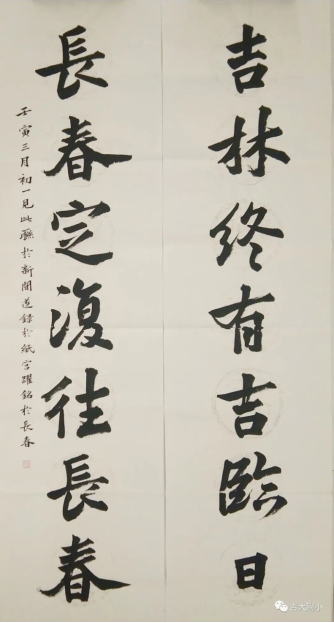 吉林終有吉臨日
長春定復往長春
壬寅三月初一見此聯於新聞道錄於紙宇躍銘於長春
吉大秋小